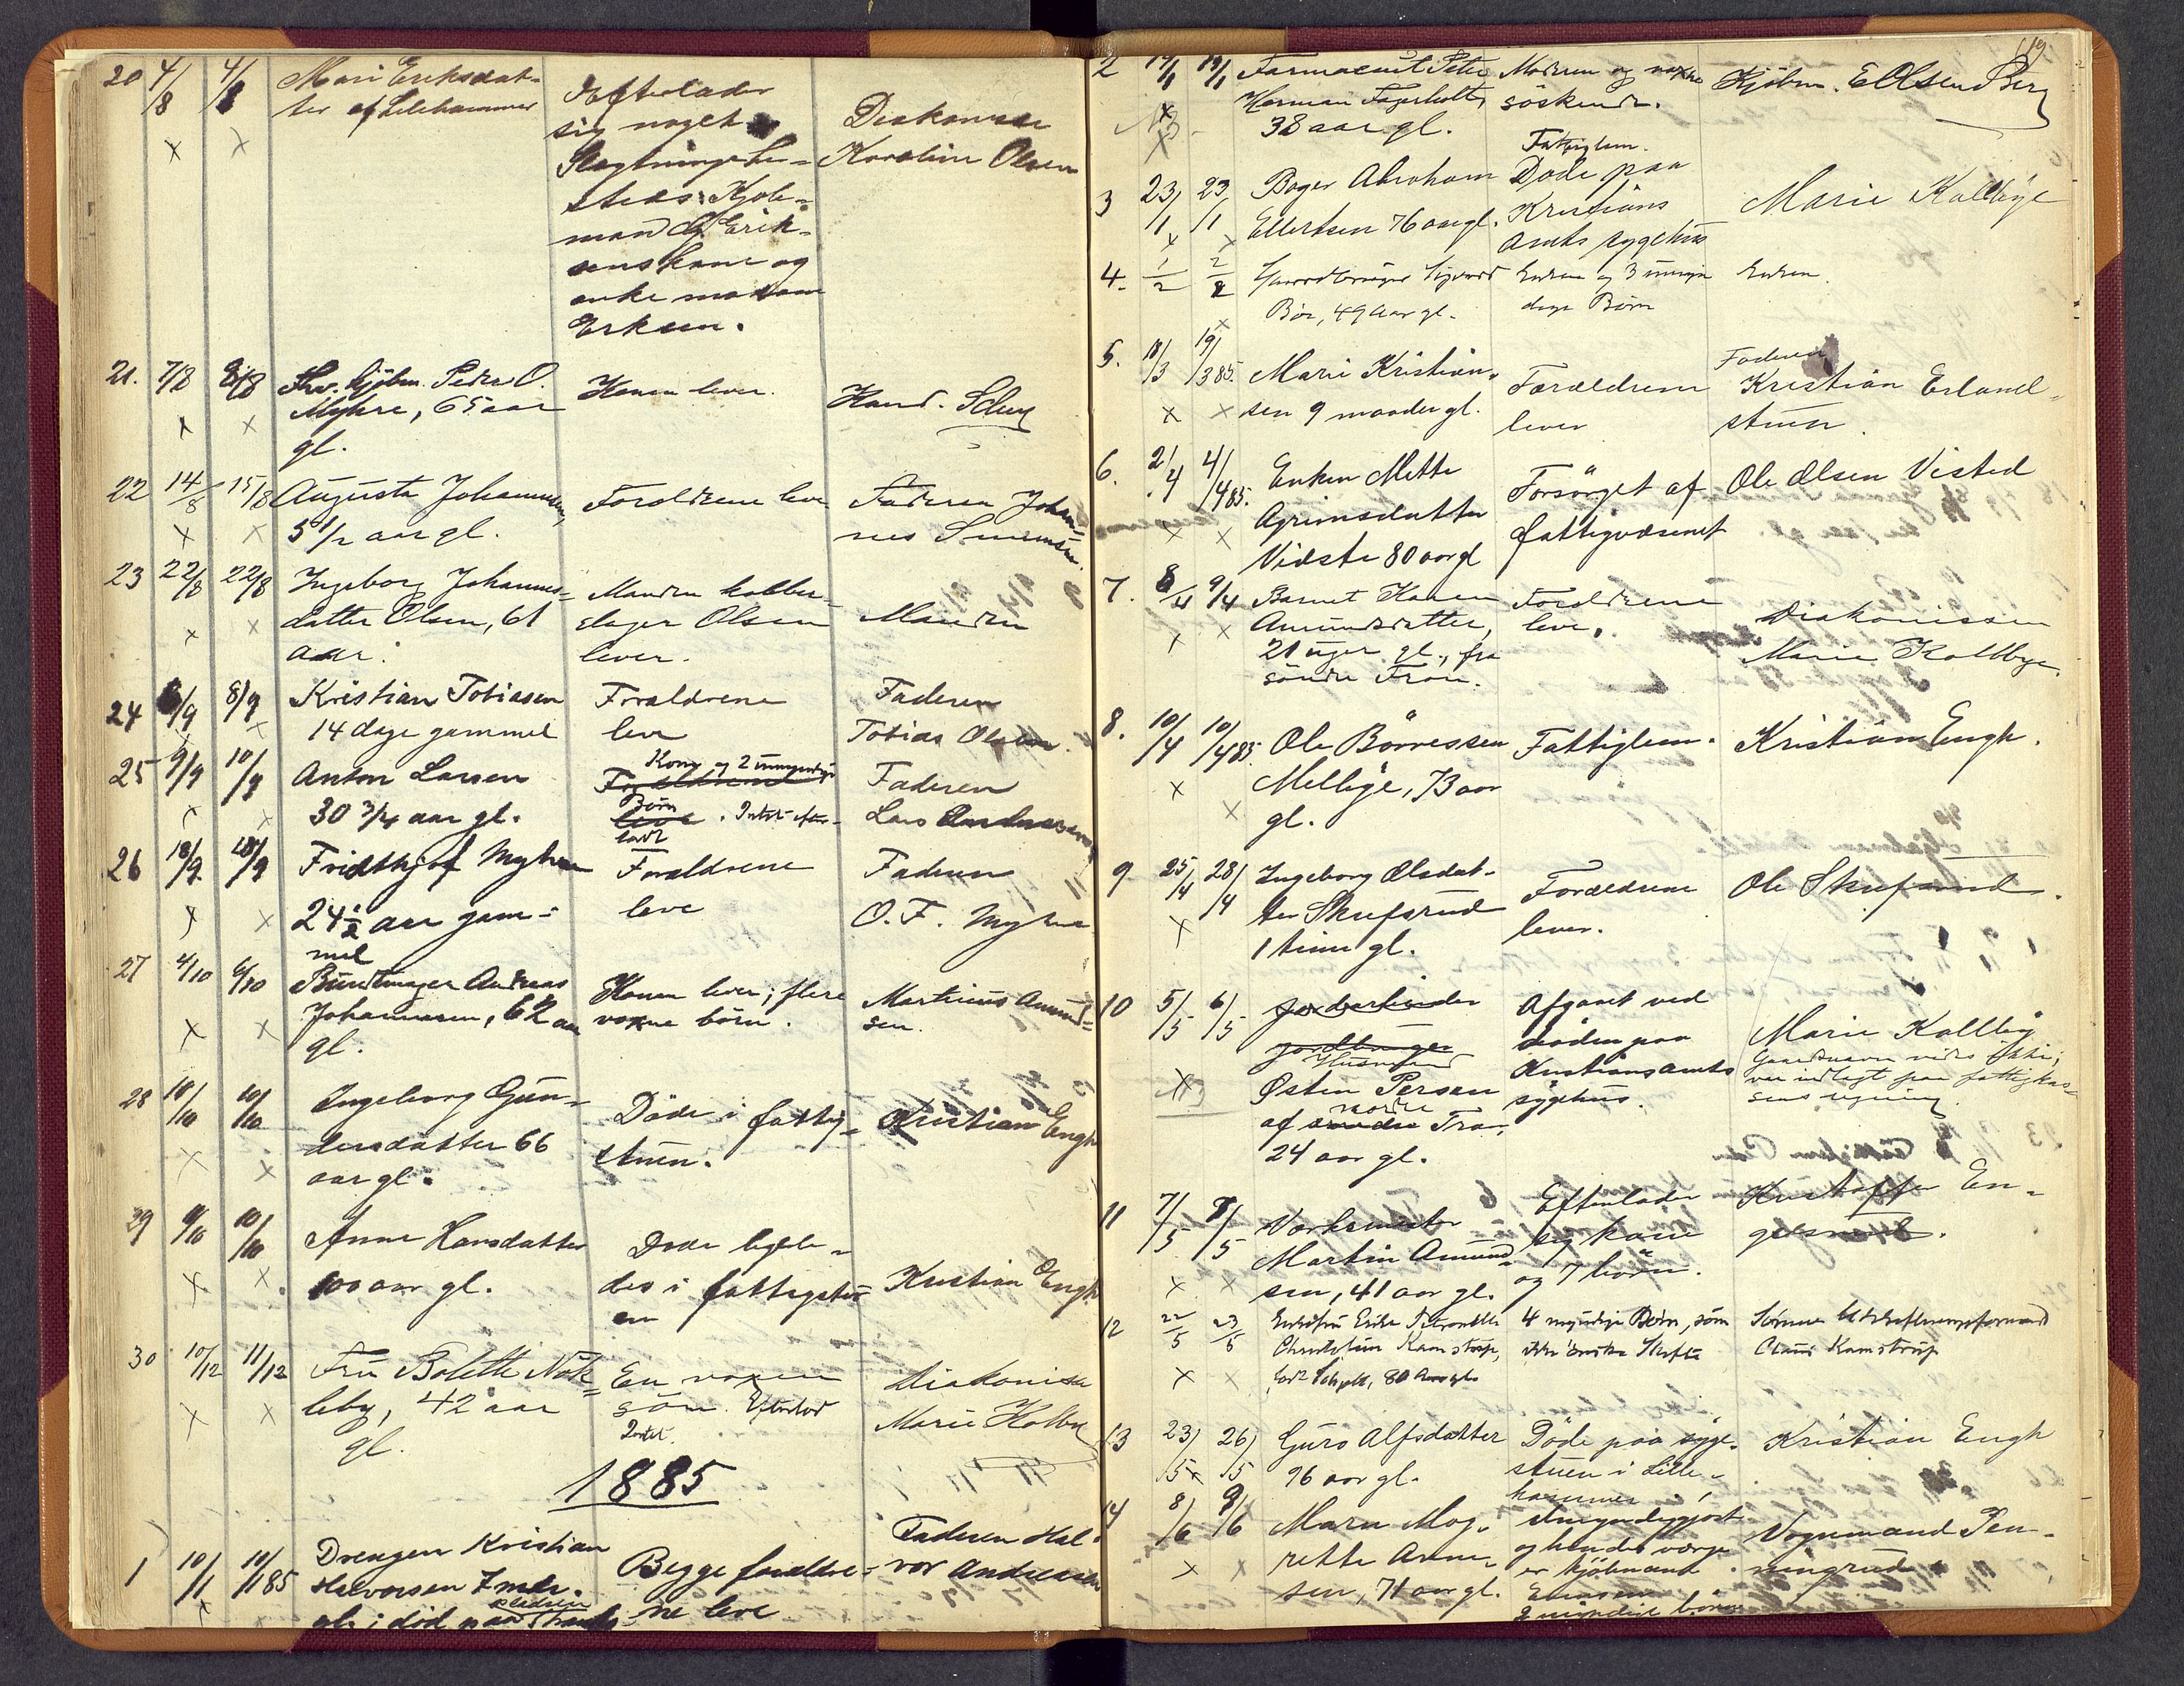 20 4/8 4/8 Mari Eriksdat-
ter af Lillehammer
Efterlader
sig noget
Slegtninge he-
steds: Kjøb-
mand G. Erik-
sens kone og
enke madam
Erksen.
Diakonisse
Karoline Olsen
21. 7/8 8/8 Fhv. kjøbm. Peder O.
Myhre, 65 aar
gl.
Konen lever.
Hand.
22 14/8 15/8 Augusta Johannesen,
5 1/2 aar gl.
Foreldrene leve
Faderen Johan-
nes
23 22/8 22/8 Ingeborg Johannes-
datter Olsen, 61
aar.
Manden kobber-
slager Olsen
lever.
Manden
24 6/9 8/9 Kristian Tobiasen
14 dage gammel
Forældrene
leve
Faderen
Tobias Olsen.
25 9/9 10/9 Anton Larsen
30 3/4 aar gl.
Kone og 2 umyndige
Forældrene
Børn
leve. Intet efter-
ladt
Faderen
Lars Andersen
26 18/9 18/9 Fridthjof Myhre
24 1/2 aar gam-
mel
Forældrene
leve
Faderen
O. F. Myhre
27 4/10 6/10 Buntmager Andreas
Johannesen, 62 aar
gl.
Konen lever; flere
voxne børn.
Martinus Amund-
sen.
28 10/10 10/10 Ingeborg Gun-
dersdatter 66
aar gl.
Døde i fattig-
stuen.
Kristian Engh
29 9/10 10/10 Anne Hansdatter
100 aar gl.
Døde ligele-
des i fattigstu-
en
Kristian Engh
30 10/12 11/12 Fru Bolette Nøk-
leby, 42 aar
gl.
En voxen
søn. Efterlod
Intet.
Diakonisse
Marie Kolby
1885
1 10/1 10/1 85 Drengen Kristian
Halvorsen 7 mdr.
gl; død paa
Begge foreldre-
ne leve
Faderen Hal-
vor Andersen
19
2 Farmaceut Peter
Herman Fagerholt,
38 aar gl.
Moderen og voxne
søskende.
Kjøbm. E Olsen Berg
3 23/1 23/1 Bager Abraham
Ellertsen 76 aar gl.
Fattiglem.
Døde paa
Kristians
Amts sygehus
Marie Kollbye
4. 1/2 2/2 Gaardbruger Sigvard
Bøe, 49 Aar gl.
Enken og 3 umyn-
dige Børn
Enken.
5. 18/3 19/3 85. Marie Kristian-
sen 9 maader gl.
Forældrene
lever
Faderen
Kristian Erland-
stuen.
6. 2/4 4/4 85. Enken Mette
Agrimsdatter
Vidste 80 aar gl
Forsørget af
fattigvæsenet
Ole Olsen Visted
7. 8/4 9/4 Barnet Karen
Amundsdatter,
21 uger gl., fra
søndre Fron.
Foreldrene
leve.
Diakonissen
Marie Kollbye.
8. 10/4 10/4 85. Ole Børresen
Mellbye, 73 aar
gl.
Fattiglem.
Kristian Engh.
9 25/4 28/4 Ingeborg Olsdat-
ter Skufsrud
1 time gl.
Foreldrene
lever.
Ole Skufsrud.
10 5/5 6/5 jordarbeider
jordbruger
Husmand
Østen Persen
nordre
af søndre Fron,
24 aar gl.
Afgaaet ved
døden paa
Kristians amts
sygehus.
Marie Kollby
Gaardnavn vides ikke;
var indlagt paa fattigkas-
sens regning.
11 7/5 8/5 Verkmester
Martin Amund-
sen, 41 aar gl.
Efterlader
sig kone
og 7 børn.
Kristoffer En-
12 22/5 23/5 Enkefru
Kamstrup,
80 Aar gl.
4 myndige Børn, som
ikke ønske Skifte
Sønnen
Claus Kamstrup
13 23/5 26/5 Guro Alfsdatter
96 aar gl.
Døde paa syge-
stuen i Lille-
hammer
Kristian Engh
14 8/6 9/6 Maren Mag-
rette Anne-
sen, 71 aar gl.
Umyndiggjort
og hendes værge
er kjøbmand
2 myndige børn
Vognmand Pen-
ningrud.